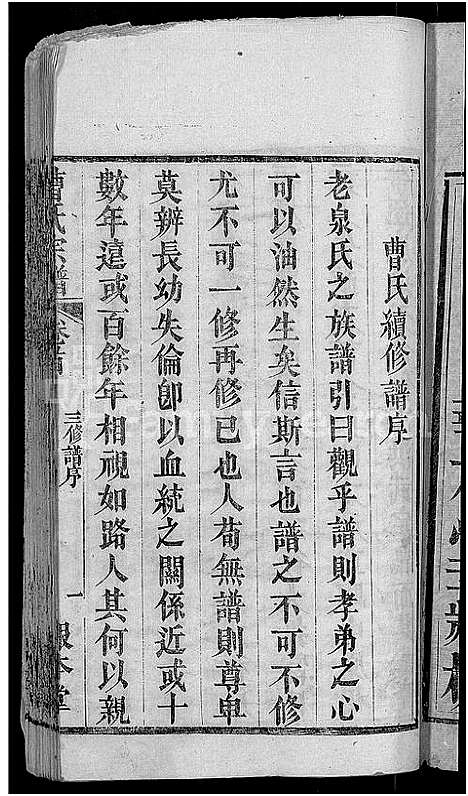 曹氏續修譜序
老泉氏之族譜引曰觀乎譜則孝弟之心
可以油然生矣信斯言也譜之不可不修
尤不可一修再修已也人苟無譜則尊卑
莫辨長幼失倫卽以血統之關係近或十
數年遠或百餘年相視如路人其何以親
曹氏宗譜 卷首 三修譜序 一 報本堂